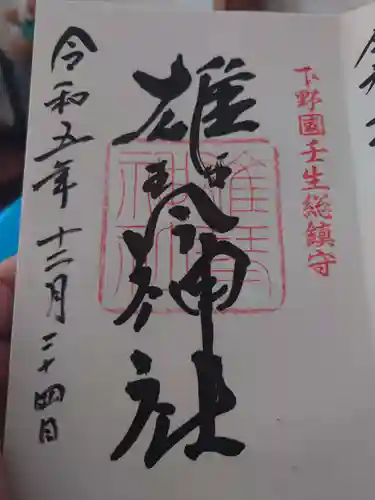 下野國壬生総鎮守
雄琴神社
令和五年十二月二十四日